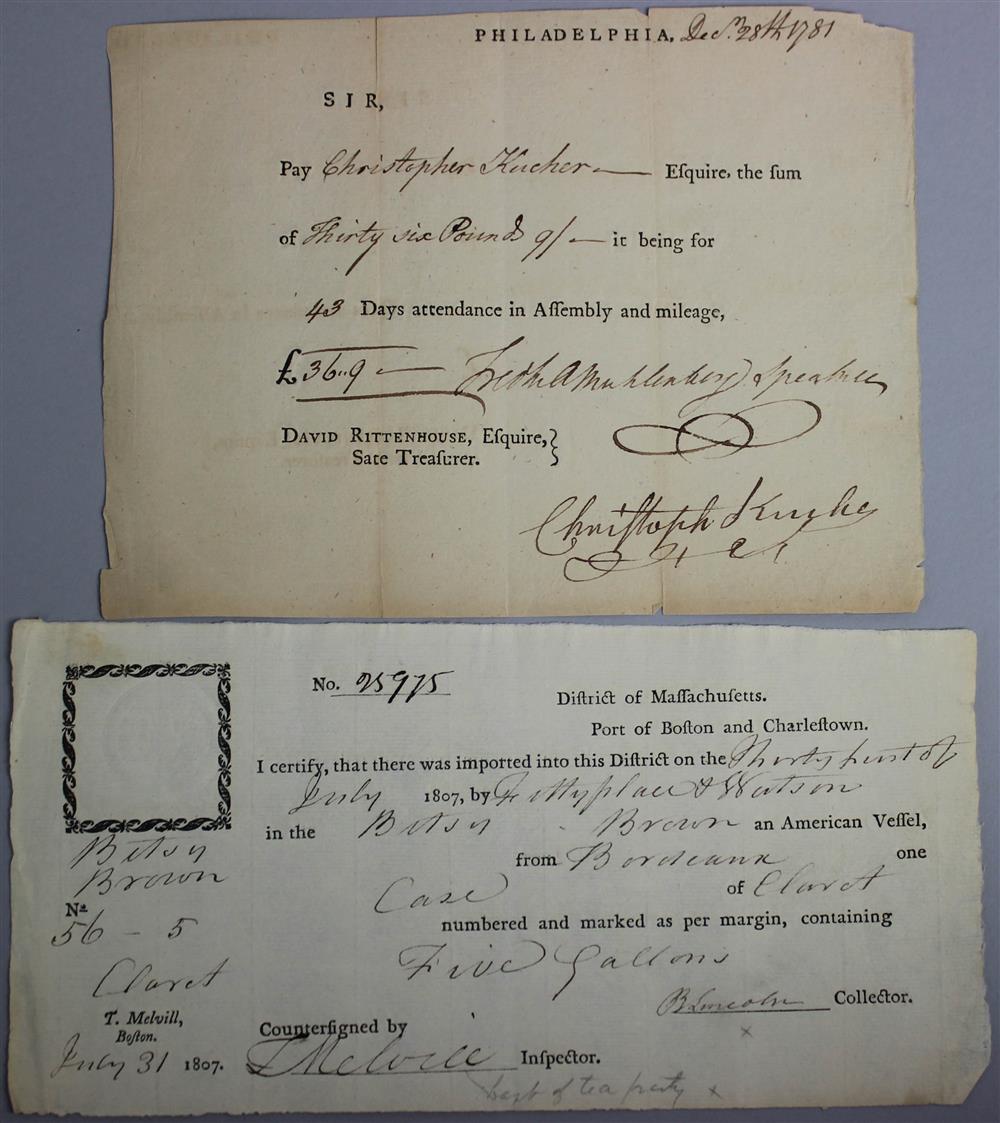 PHILADELPHIA, Decr. 28th 1781
SIR,
Pay Christopher Kucher — Eſquire, the ſum
of Thirty six Pounds 9/ — it being for
43 Days attendance in Aſſembly and mileage,
£ 36..9 — Fredk. A Muhlenberg Speaker
DAVID RITTENHOUSE, Eſquire,
Sate Treaſurer.
Chriſtoph
No. 25975
Diſtrict of Maſſachuſetts.
Port of Boſton and Charleſtown.
I certify, that there was imported into this Diſtrict on the Thirty first of
July 1807, by Fettyplace & Watson
in the Betsy - Brown an American Veſſel,
from Bordeaux one
Case of Claret
numbered and marked as per margin, containing
Five Gallons
B Lincoln Collector.
x
Counterſigned by
T Melvill Inſpector.
Capt of tea party x
Betsy
Brown
No.
56 - 5
Claret
T. Melvill,
Boſton.
July 31 1807.